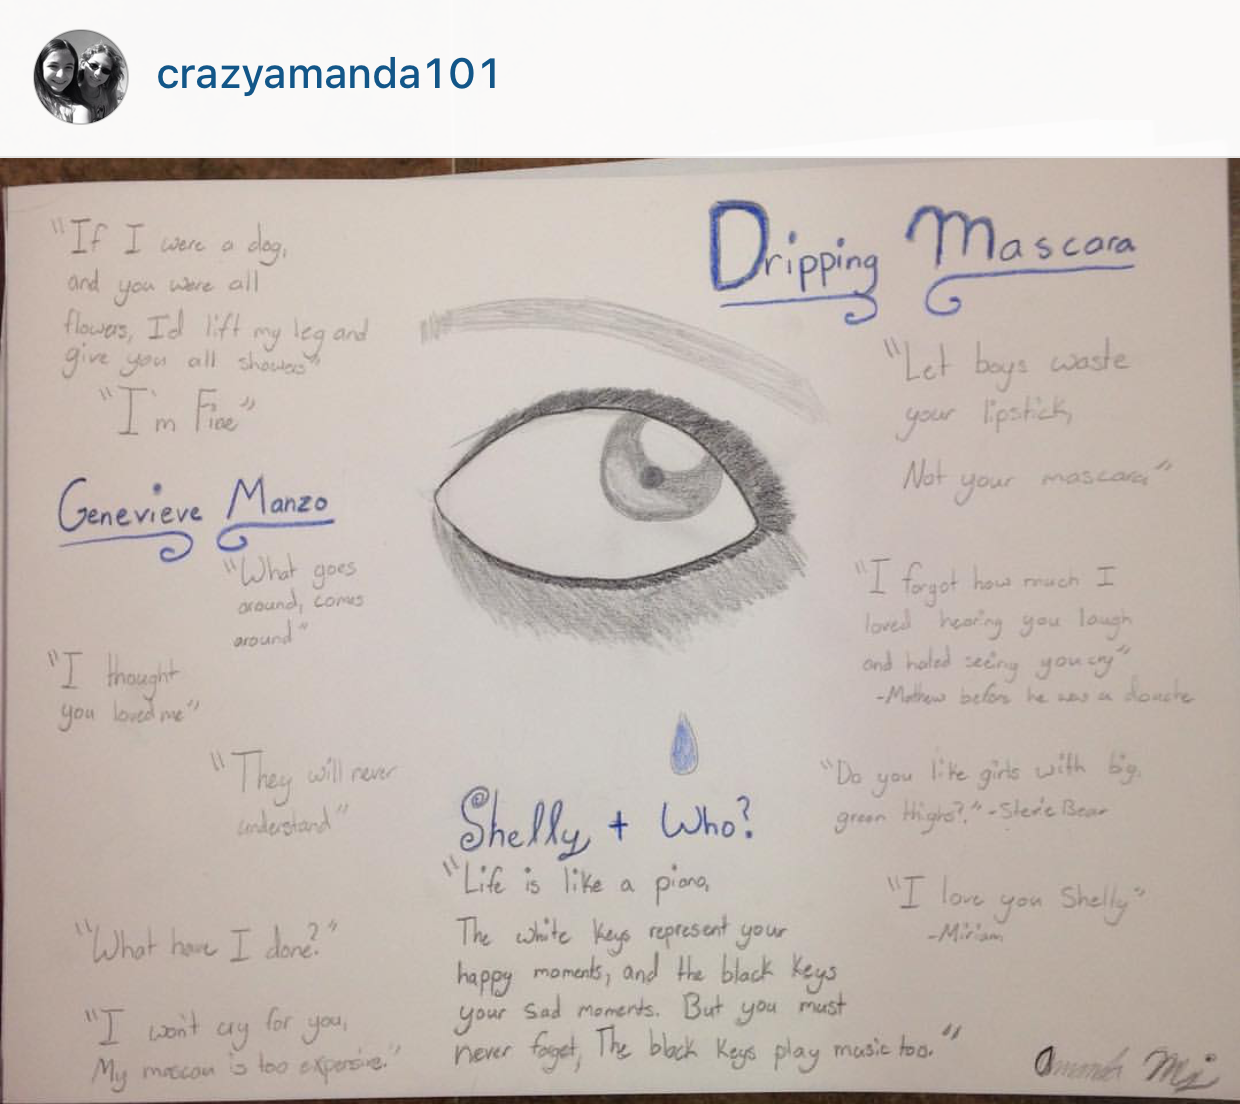 crazyamanda101
Dripping Mascara
"If I were a dog,
and you were all
flowers, I'd lift my leg and
give you all showers"
"I'm Fine"
Genevieve Manzo
"What goes
around, comes
around"
"I thought
you loved me"
"They will never
understand"
"What have I done?"
"I won't cry for you,
My mascara is too expensive."
"Let boys waste
your lipstick,
Not your mascara"
"I forgot how much I
loved hearing you laugh
and hated seeing you cry"
-Mathew before he was a douche
"Do you like girls with big,
green thighs?" -Sterie Bear
"I love you Shelly"
-Miriam
Shelly + Who?
"Life is like a piano,
The white keys represent your
happy moments, and the black keys
your sad moments. But you must
never forget, The black keys play music too."
Amanda